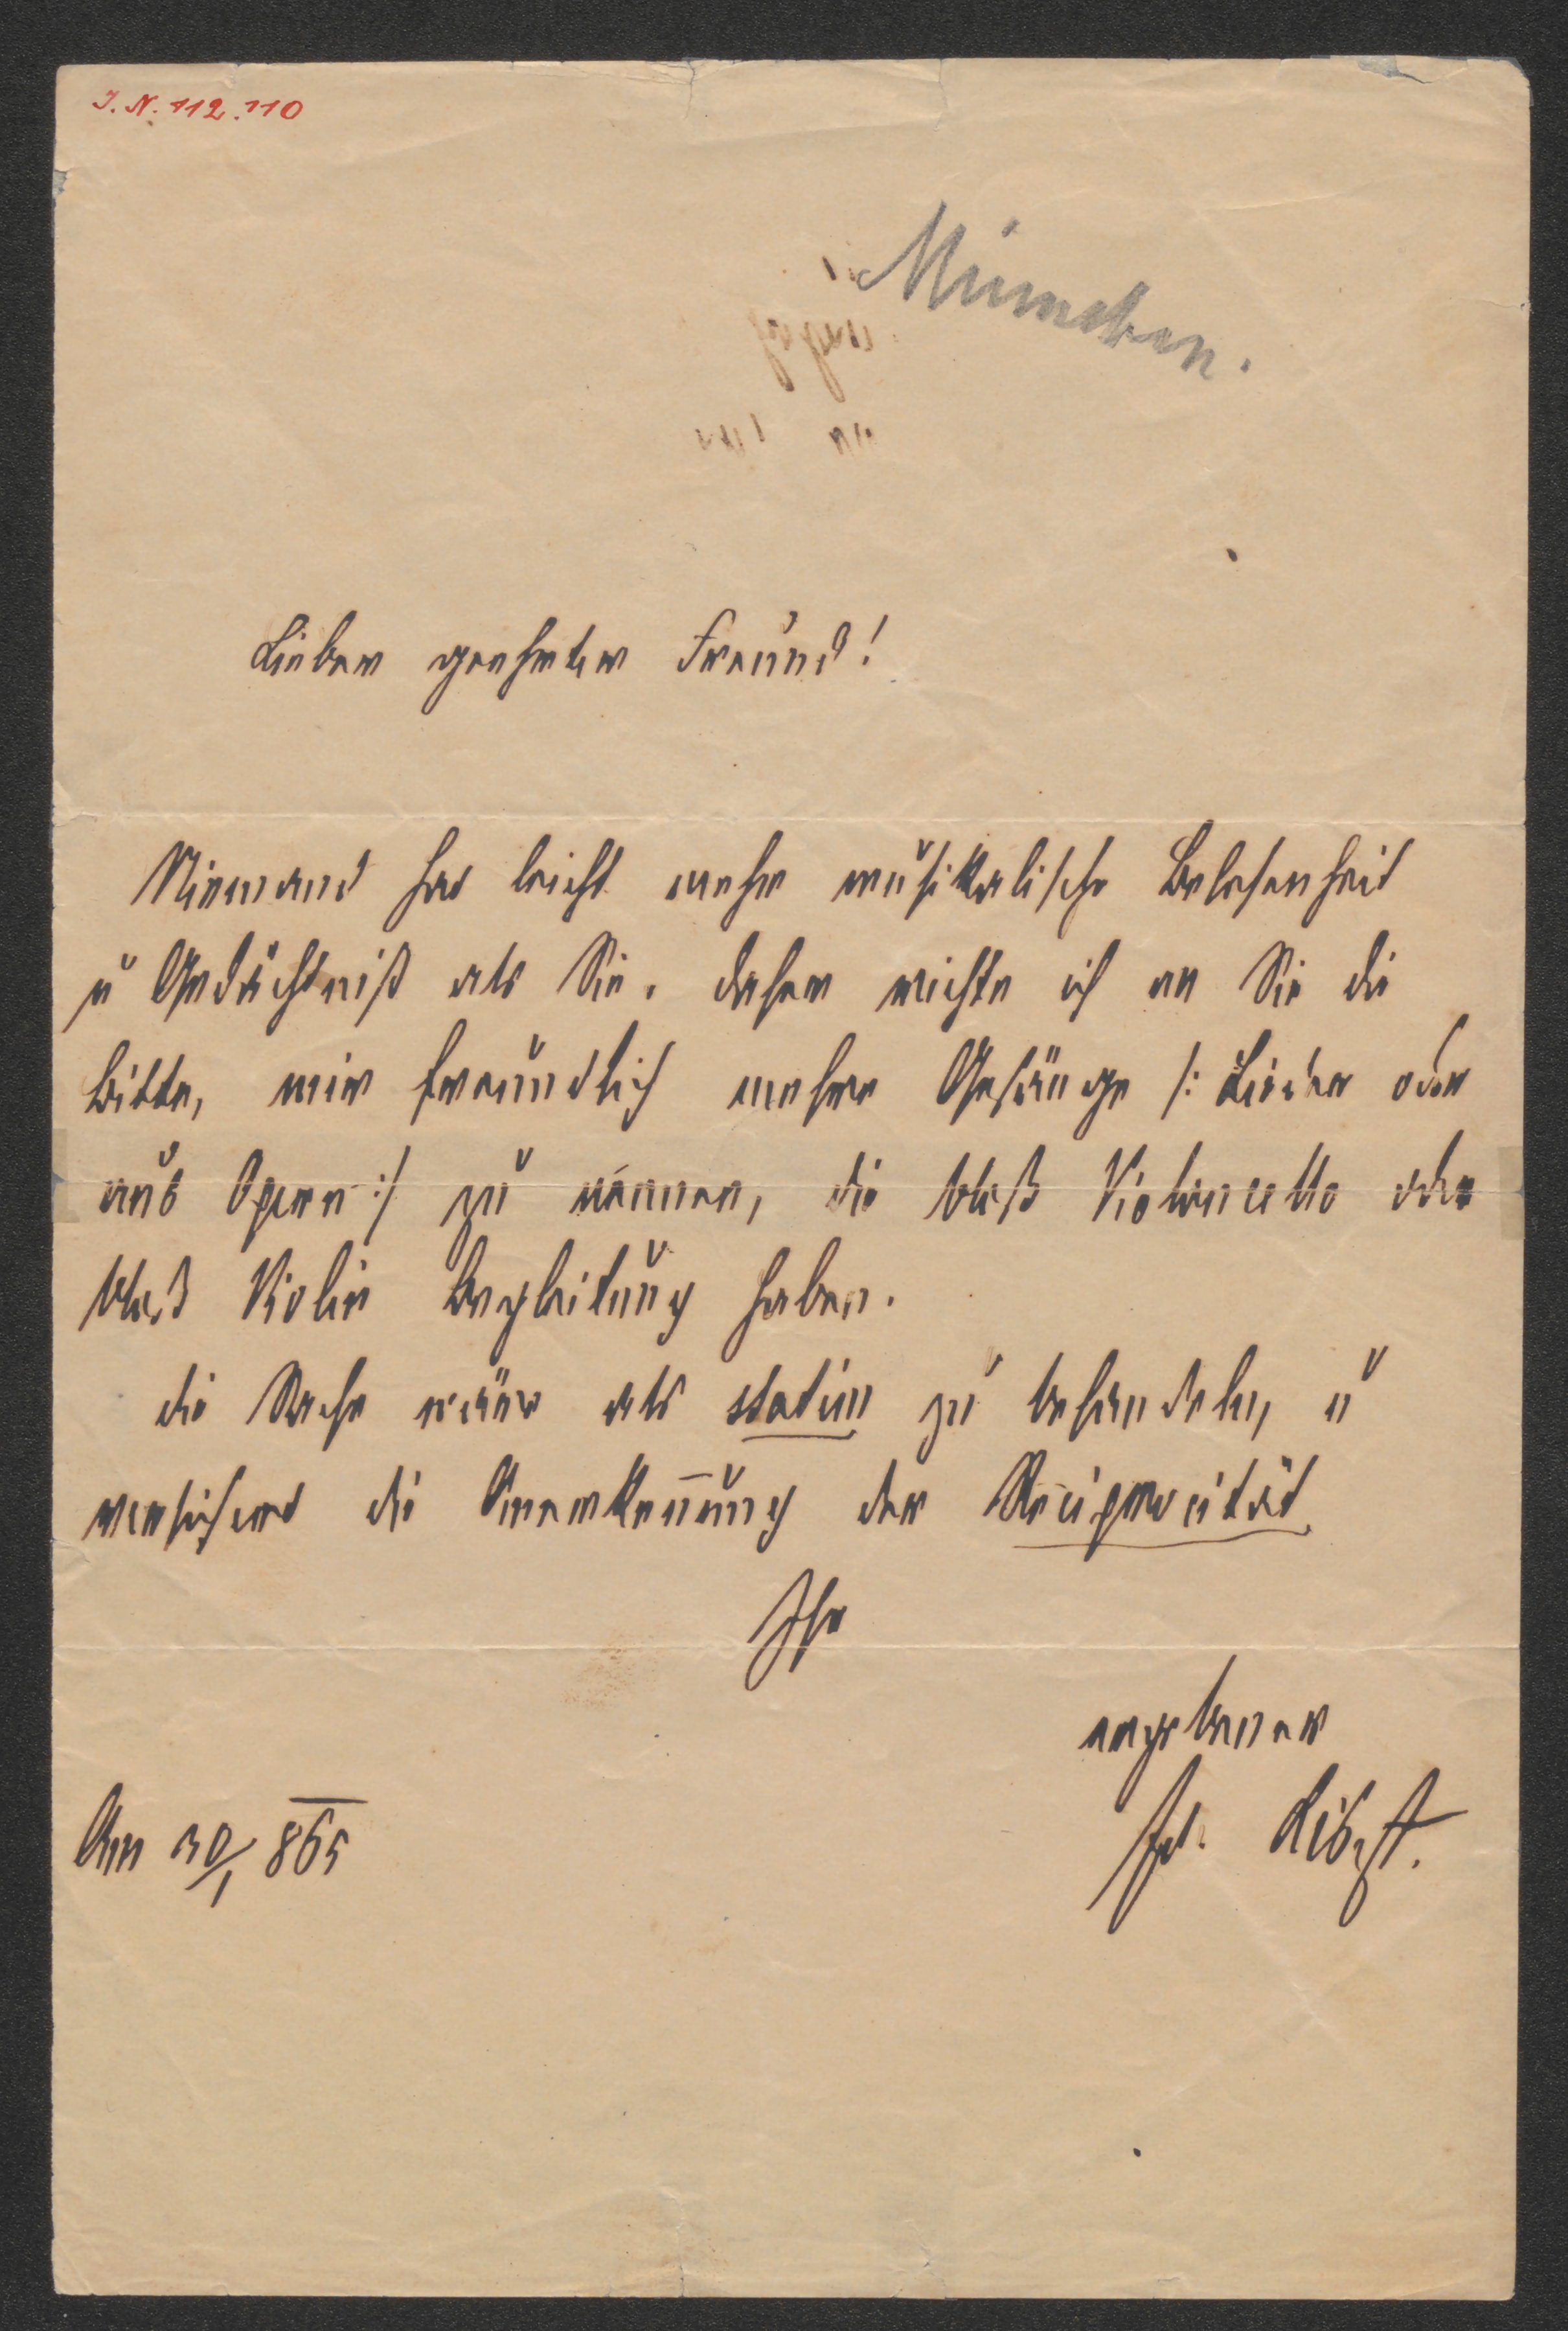 I. N. 112.110
München.
Lieber geehrter Freund!
Niemand hat leicht mehr musikalische Belesenheit
u Gedächtniß als Sie, daher richte ich an Sie die
Bitte, mir freundlich mehre Gesänge /: Lieder oder
aus Opern :/ zu nennen, die bloß Violoncello oder
bloß Violin Begleitung haben.
die Sache wäre als statim zu behandeln, u
versichert die Anerkeñung der Reciprocität
Ihr
ergebener
Am 30/1 865